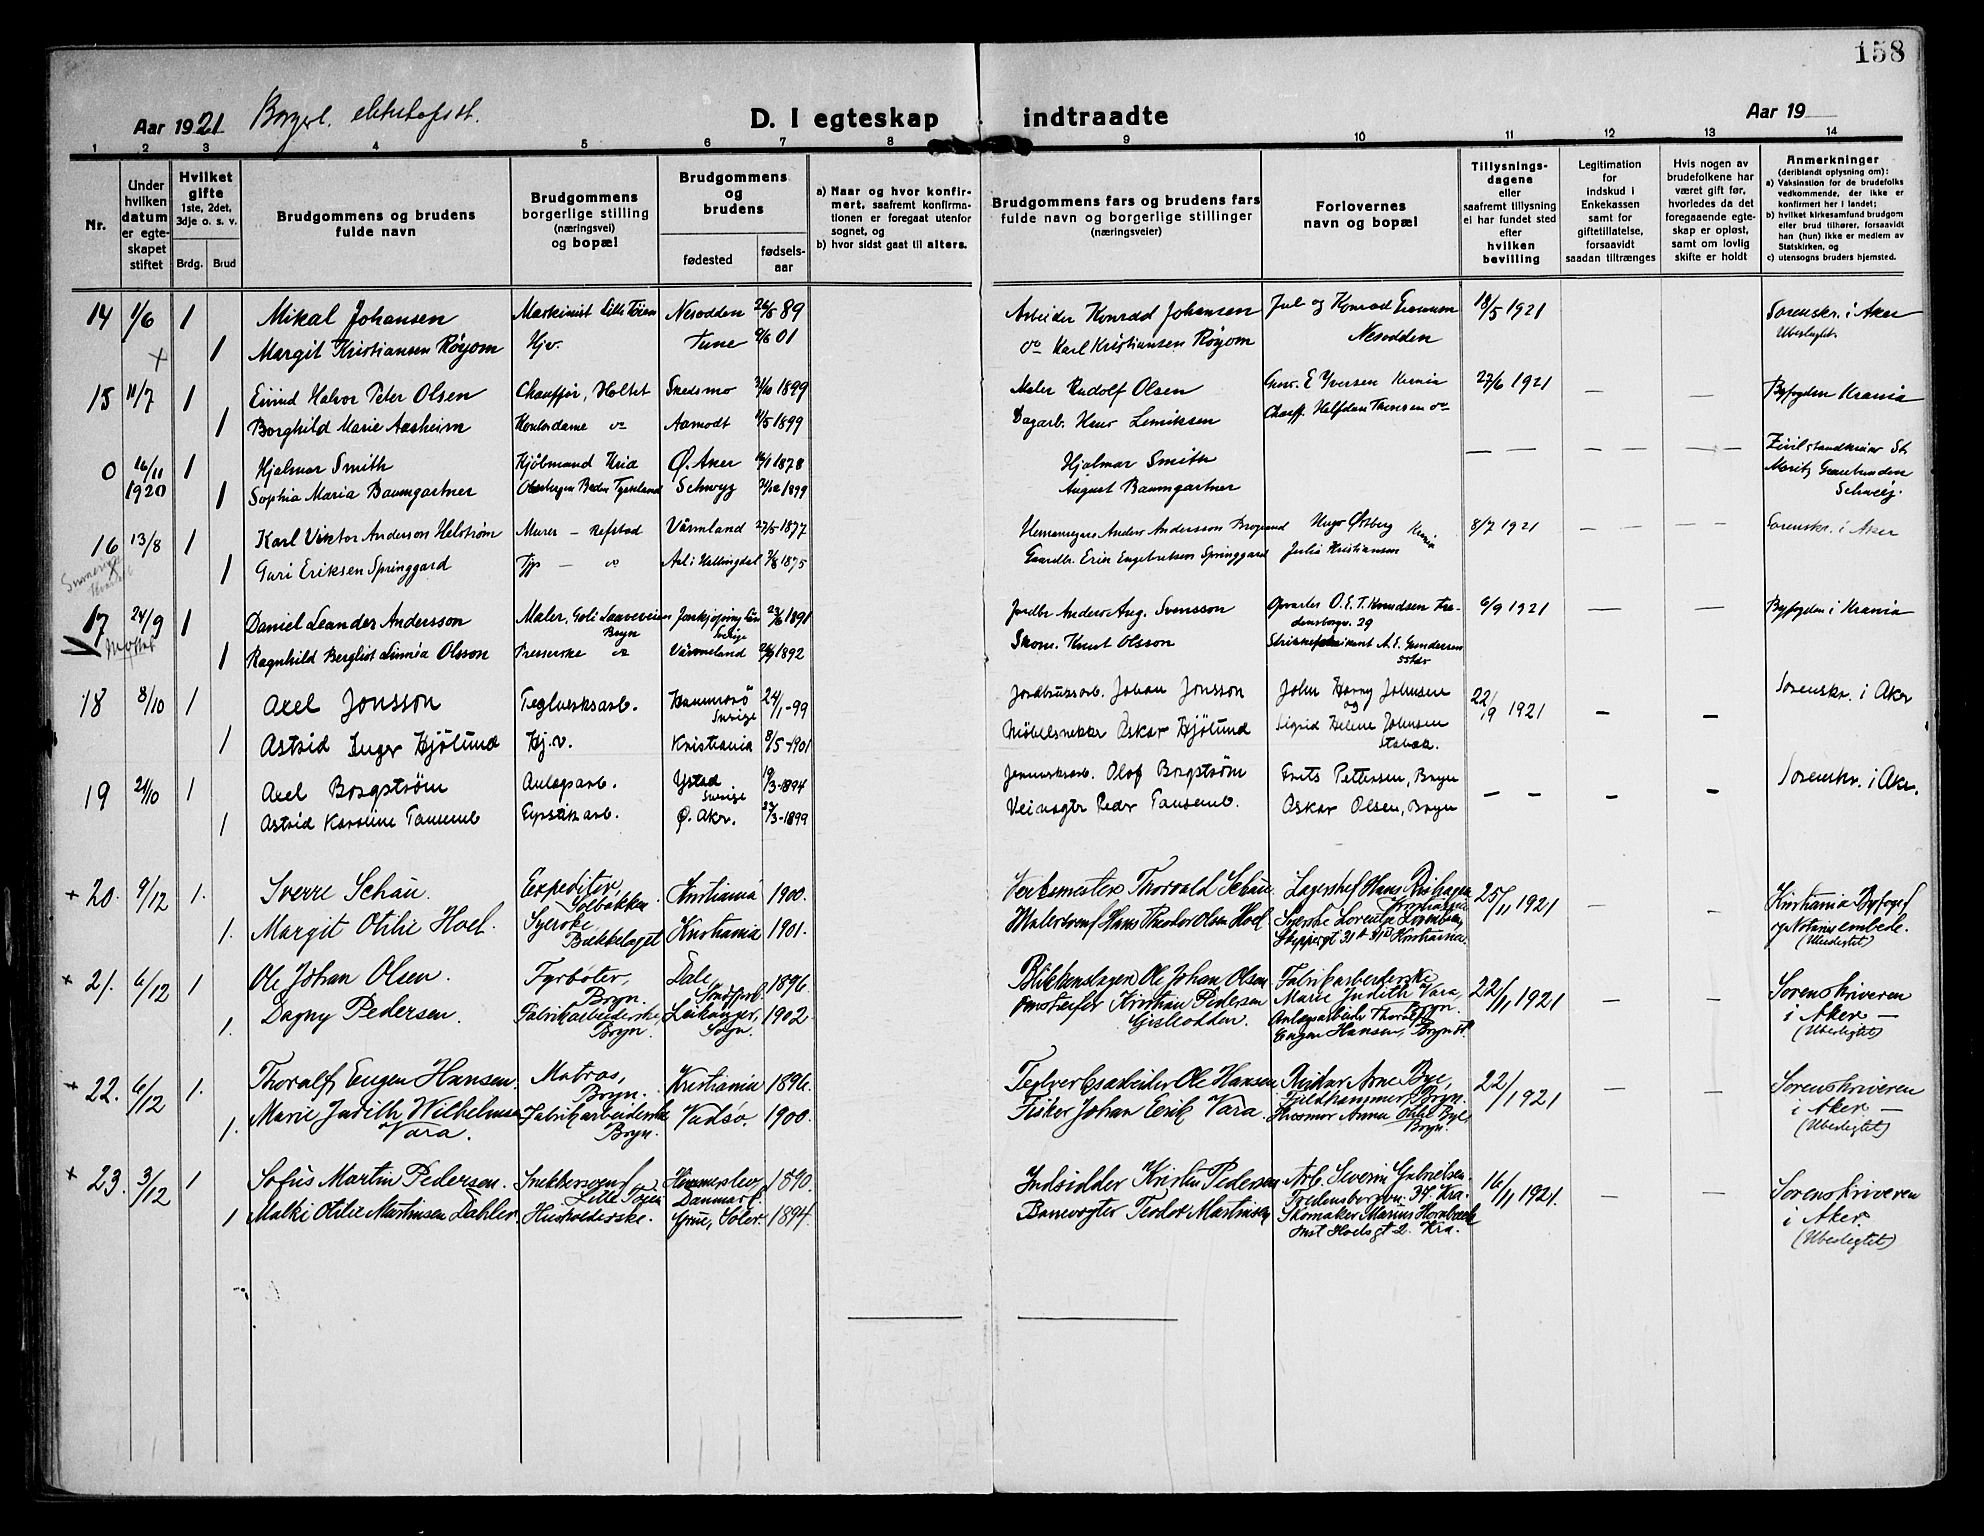 158
Aar 1921 Borgerl.
D. I egteskap indtraadte
Aar 19
1 2 3 4 5 6 7 8 9 10 11 12 13 14
Nr.
Under hvilken datum er egteskapet stiftet
Hvilket gifte 1ste, 2det, 3dje o. s. v.
Brdg. Brud
Brudgommens og brudens fulde navn
Brudgommens borgerlige stilling (næringsvei) og bopæl
Brudgommens og brudens
fødested fødselsaar
a) Naar og hvor konfirmert, saafremt konfirmationen er foregaat utenfor sognet, og
b) hvor sidst gaat til alters.
Brudgommens fars og brudens fars fulde navn og borgerlige stillinger (næringsveier)
Forlovernes navn og bopæl
Tillysningsdagene eller saafremt tillysning ei har fundet sted efter hvilken bevilling
Legitimation for indskud i Enkekassen samt for giftetillatelse, forsaavidt saadan tiltrænges
Hvis nogen av brudefolkene har været gift før, hvorledes da det foregaaende egteskap er opløst, samt om lovlig skifte er holdt
Anmerkninger (deriblandt oplysning om):
a) Vaksination for de brudefolks vedkommende, der ikke er konfirmert her i landet;
b) hvilket kirkesamfund brudgom eller brud tilhører, forsaavidt han (hun) ikke er medlem av Statskirken, og
c) utensogns bruders hjemsted.
14 1/6 1 Mikal Johansen Maskinist Lille Tøien Nesodden 26/5 89 Arbeider Konrad Johansen Jul og Konrad 18/5 1921 Sorenskr. i Aker
1 Margit Kristiansen Røyom Hjv. Tune 01 do Karl Kristiansen Røyom Nesodden Ubeslegtet
15 11/7 1 Eivind Halvor Peter Olsen Chauffør, Holtet Skedsmo 1899 Maler Rudolf Olsen E Iversen Krania 27/6 1921 — — Byfogden Krania
1 Borghild Marie Aasheim Kontordame do Aamodt 11/5 1899 Dagarb. Henr Lemiksen Chauff. Halfdan Thoresen do
0 16/11 1920 1 Hjalmar Smith Kjøbmand Kria Ø. Aker 16/1 1878 Hjalmar Smith — — — — St. Moritz Graubunden
1 Sophia Maria Baumgartner Baden Tyskland Schwyz 1899 August Baumgartner Schweiz.
16 13/8 1 Karl Viktor Anderson Helstrøm Murer — Refstad Värmland 27/5 1877 Anders Andersson Hugo Østberg Kria 8/7 1921 — — — Sorenskr. i Aker
1 Guri Eriksen Springgard Tjp — do Aal i Hallingdal 1875 Gaardbr. Erik Engebretsen Springgard Julia Kristiansen
17 24/9 1 Daniel Leander Andersson Maler, Bryn Jønkjøping län Sverige 1891 Jordbr Anders Aug. Svensson Opvarter O. E. T. Knudsen Fredensborgv. 29 6/9 1921 — — Byfogden i Krania
1 Ragnhild Berglist Linnéa Olsson Presserske do Värmeland 1892 Skom. Knut Olsson A. E. Gundersen
18 8/10 1 Axel Jonsson Teglverksarb. Hammarö Sverige 24/1-99 Jordbruksarb. Johan Jonsson John Harry Johnsen og 22/9 1921 — — Sorenskr. i Aker
1 Astrid Inger Hjølund Hj.v. Kristiania 8/5-1901 Møbelsnekker Oskar Hjölund Sigrid Helene Johnsen Stabæk.
19 21/10 1 Axel Borgstrøm Anlægsarb. Ystad Sverige 19/3-1894 Olof Borgstrøm Frits Pettersen, Bryn — — — — Sorenskr. i Aker.
1 Astrid Karoline Tansemb Eyrsikarb. Ø. Aker. 23/3-1899 Veivogter Peder Tansemb. Oskar Olsen, Bryn
+ 20. 9/12 1. Sverre Schau. Expeditør, Solbakken. Kristiania 1900. Verksmester Thorvald Schau Lagerchef Hans 25/11 1921 — — Kristiania Byfoged
1. Margit Otilie Hoel. Syerske, Bækkelaget Kristiania 1901. Malersvend Hans Theodor Olsen Hoel Syerske Skippergt 31 Kristiania. og Notarius embede. (Ubeslegtet)
+ 21. 6/12 1 Ole Johan Olsen. Fyrbøter, Bryn. Dale, Søndfjord. 1896. Blikkenslager Ole Johan Olsen Fabrikarbeiderske Marie Judith Vara, Bryn. 22/11 1921 — — Sorenskriveren i Aker —
1. Dagny Pedersen. Fabrikarbeiderske, Bryn. Leikanger, Sogn. 1902. Kristian Pedersen Anlægsarbeider Thoralf Eugen Hansen, Bryn st. (Ubeslegtet)
+ 22. 6/12 1. Thoralf Eugen Hansen. Matros, Bryn. Kristiania 1896. Teglverksarbeider Ole Hansen Arne Bye, Fjeldhammer, Bryn. 22/11 1921 — — Sorenskriveren i Aker —
1. Marie Judith Wilhelmsen Vara. Fabrikarbeiderske Bryn. Vadsø. 1900. Fisker Johan Erik Vara. Husmor Anna Otilie Bye, Bryn. (Ubeslegtet)
+ 23. 3/12 1 Sofus Martin Pedersen. Snekkersvend Lille Tøien Danmark. 1890. Indsidder Kristen Pedersen Arb. Severin Gabrielsen Fredensborgvn. 39. Kra. 16/11 1921. — — Sorenskriveren i Aker.
1 Malki Otilie Martinsen Dahler. Husholderske. Grue, Solør. 1894. Banevogter Teodor Martinsen Skomaker Marius Hornbæck Hoelsgt 2. Kra. (Ubeslegtet)